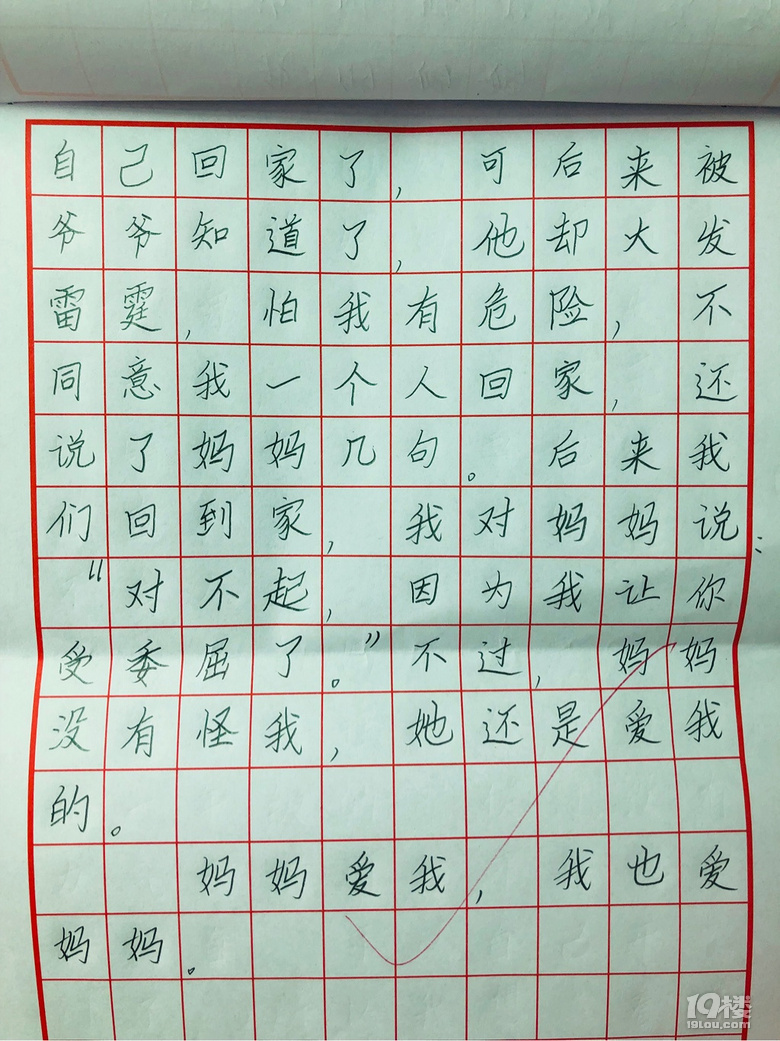 自己回家了，可后来被
爷爷知道了，他却大发
雷霆，怕我有危险，不
同意我一个人回家，还
说了妈妈几句。后来我
们回到家，我对妈妈说：
“对不起，因为我让你
受委屈了。”不过，妈妈
没有怪我，她还是爱我
的。
妈妈爱我，我也爱
妈妈。
19楼
19lou.com